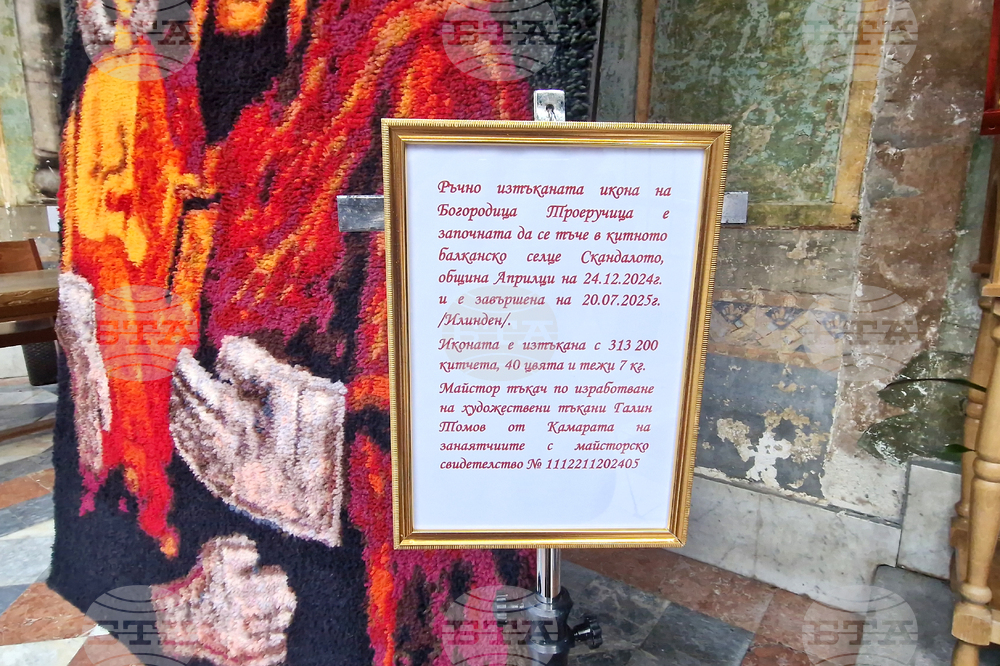 Ръчно изтъканата икона на
Богородица Троеручица е
започната да се тъче в китното
балканско селце Скандалото,
община Априлци на 24.12.2024г.
и е завършена на 20.07.2025г.
/Илинден/.
Иконата е изтъкана с 313 200
китчета, 40 цвята и тежи 7 кг.
Майстор тъкач по изработване
на художествени тъкани Галин
Томов от Камарата на
занаятчиите с майсторско
свидетелство № 1112211202405
БТА
БТА
БТА
БТА
БТА
БТА
БТА
БТА
БТА